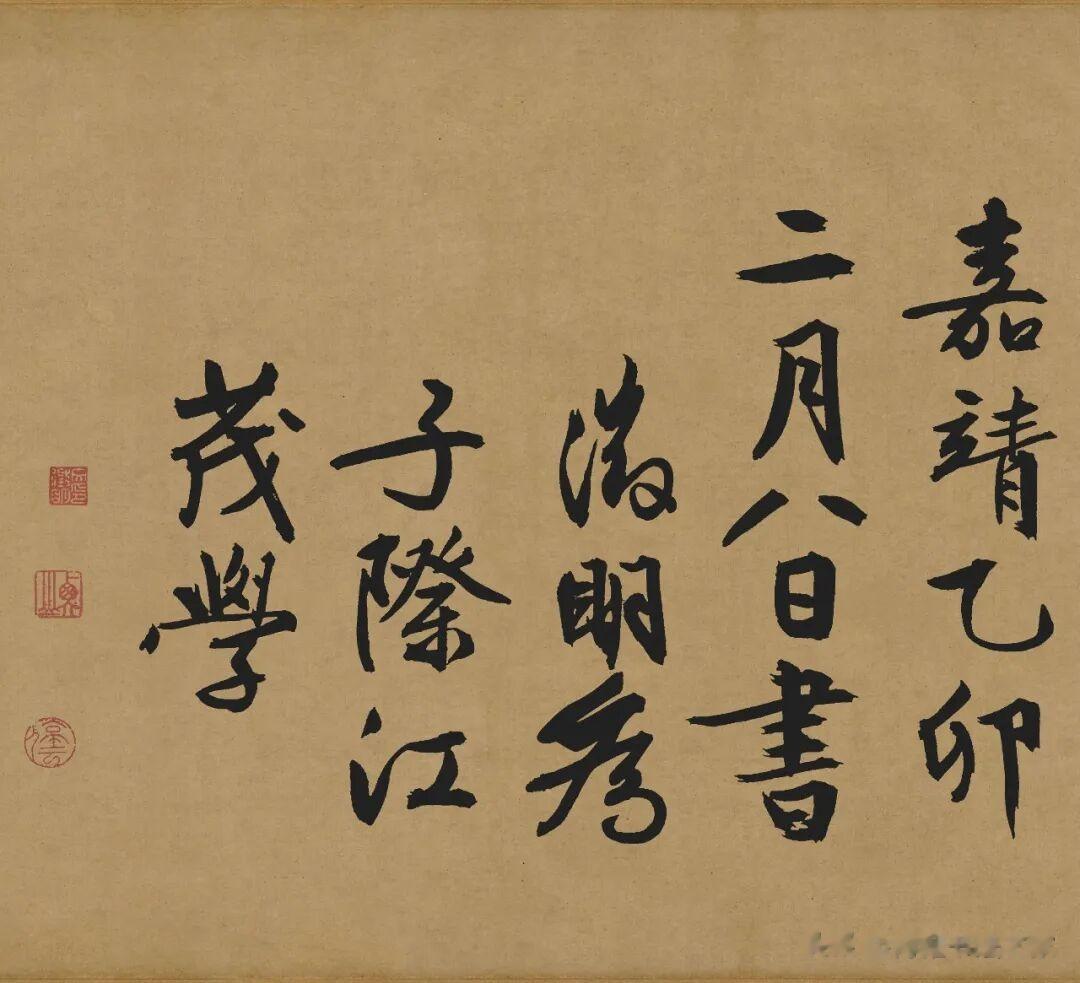 嘉靖乙卯
二月八日書
徵明為
子際江
茂學